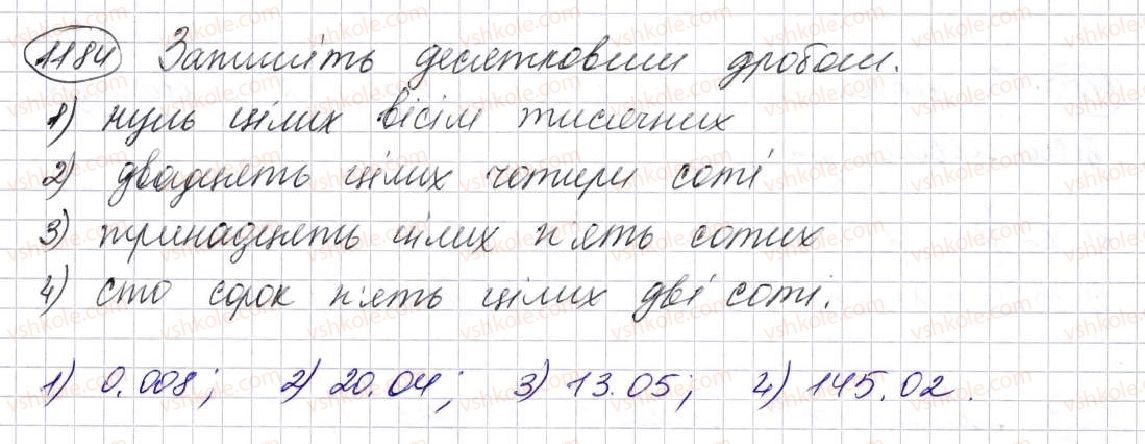 1184 Запишіть десятковим дробом.
1) нуль цілих вісім тисячних
2) двадцять цілих чотири соті
3) тринадцять цілих п'ять сотих
4) сто сорок п'ять цілих дві соті.
1) 0.008; 2) 20.04; 3) 13.05; 4) 145.02.